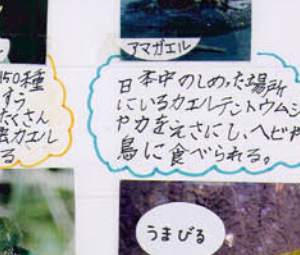 アマガエル
150種
すう
たくさん
カエル
る
日本中のしめった場所
にいるカエルテントウムシ
や力をえさにし、ヘビや
鳥に食べられる。
うまびる